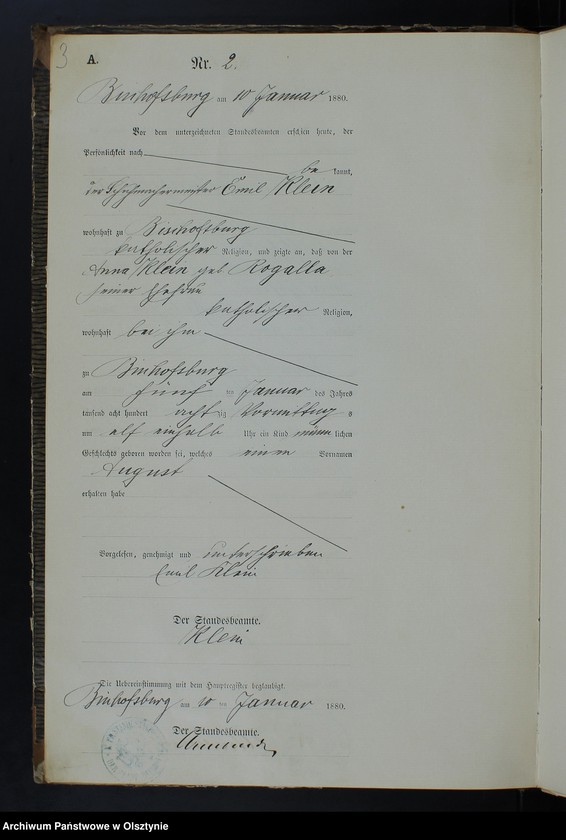 3
A.
Nr. 2.
Bischofsburg am 10 Januar 1880.
Vor dem unterzeichneten Standesbeamten erschien heute, der
Persönlichkeit nach
be kannt,
der Schuhmachermeister Emil Klein
wohnhaft zu Bischofsburg
katholischer Religion, und zeigte an, daß von der
Anna Klein geb Rogalla
seiner Ehefrau
katholischer Religion,
wohnhaft bei ihm
zu Bischofsburg
am fünf ten Januar des Jahres
tausend acht hundert acht zig Vormittag s
um elf einhalb Uhr ein Kind männ lichen
Geschlechts geboren worden sei, welches einen Vornamen
August
erhalten habe
Vorgelesen, genehmigt und unterschrieben
Emil Klein
Der Standesbeamte.
Klein
Die Uebereinstimmung mit dem Hauptregister beglaubigt.
Bischofsburg am 10 ten Januar 1880.
Der Standesbeamte.
Archiwum Państwowe w Olsztynie